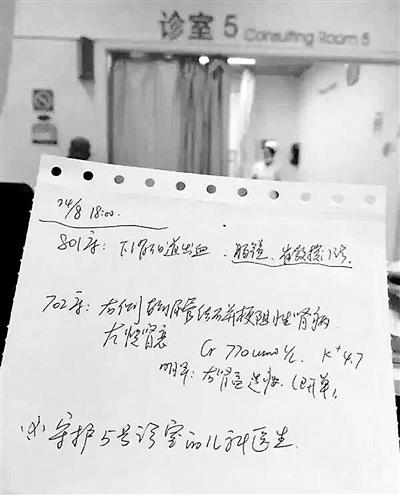 诊室 5 Consulting Room 5
24/8 18:00.
801床: 下消化道出血. 肠镜.
702床: 右侧输尿管结石并梗阻性肾病.
左慢肾衰 Cr 770umol/L K+4.7
明早: 右肾造瘘.
守护5号诊室的儿科医生.